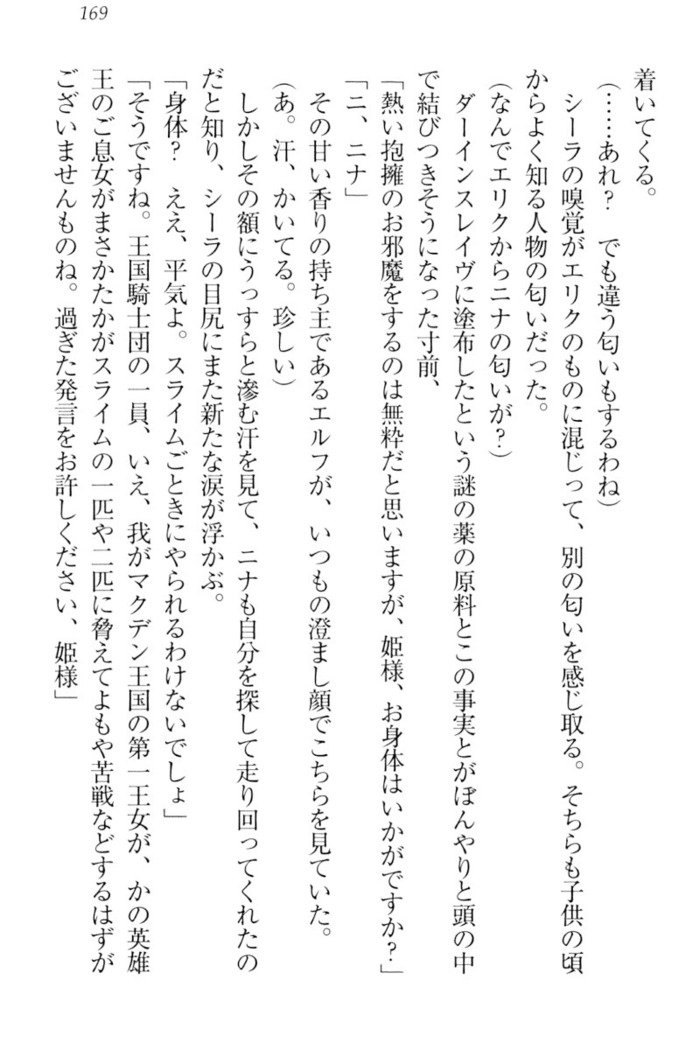 169
着いてくる。
(……あれ？　でも違う匂いもするわね)
　シーラの嗅覚がエリクのものに混じって、別の匂いを感じ取る。そちらも子供の頃
からよく知る人物の匂いだった。
(なんでエリクからニナの匂いが？)
　ダーインスレイヴに塗布したという謎の薬の原料とこの事実とがぼんやりと頭の中
で結びつきそうになった寸前、
「熱い抱擁のお邪魔をするのは無粋だと思いますが、姫様、お身体はいかがですか？」
「ニ、ニナ」
　その甘い香りの持ち主であるエルフが、いつもの澄まし顔でこちらを見ていた。
(あ。汗、かいてる。珍しい)
　しかしその額にうっすらと滲む汗を見て、ニナも自分を探して走り回ってくれたの
だと知り、シーラの目尻にまた新たな涙が浮かぶ。
「身体？　ええ、平気よ。スライムごときにやられるわけないでしょ」
「そうですね。王国騎士団の一員、いえ、我がマクデン王国の第一王女が、かの英雄
王のご息女がまさかたかがスライムの一匹や二匹に脅えてよもや苦戦などするはずが
ございませんものね。過ぎた発言をお許しください、姫様」